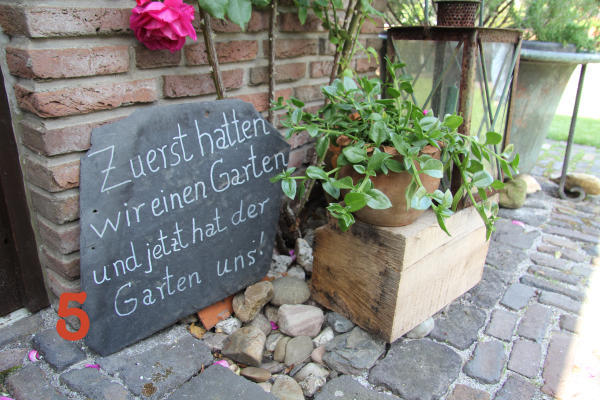 Zuerst hatten
wir einen Garten
und jetzt hat der
Garten uns!
5